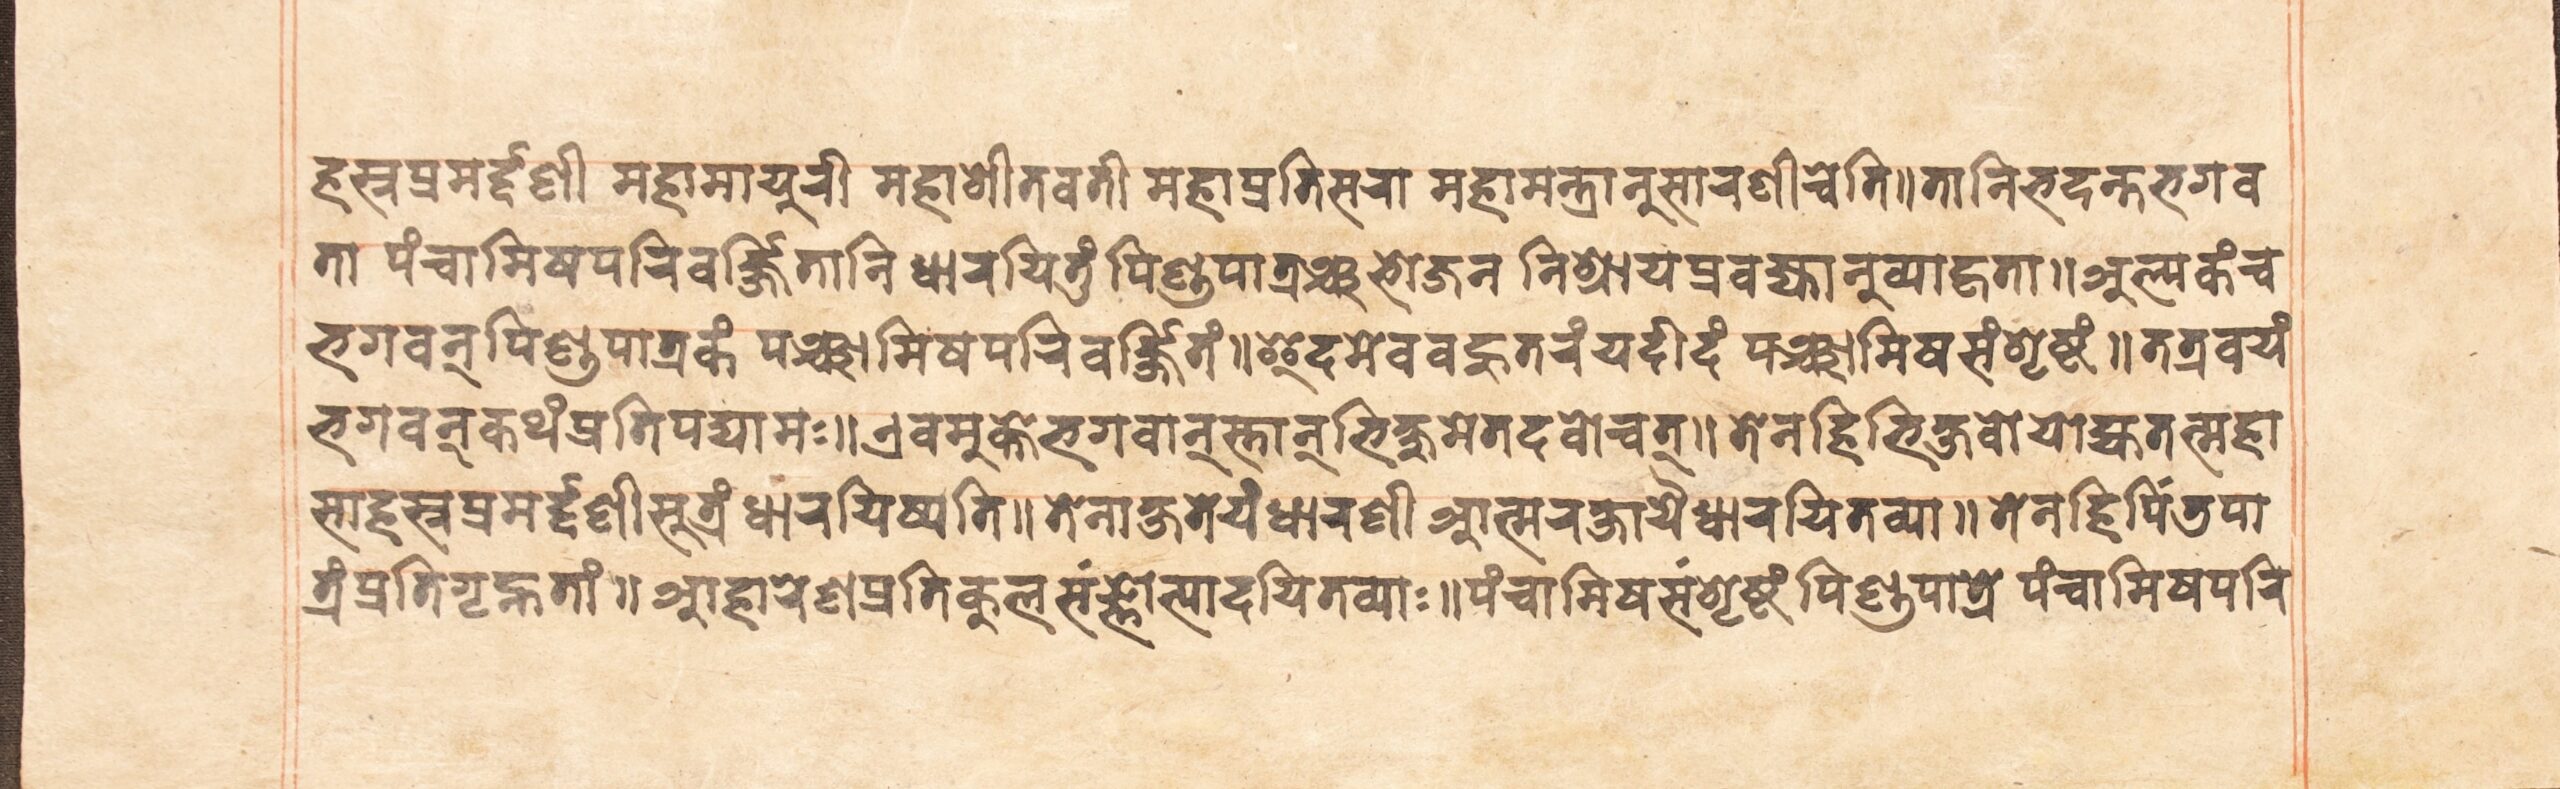 हस्रप्रमर्द्दणी महामायुरी महाशीतवती महाप्रतिसरा महामन्त्रानुसारणीचेति॥तानिभदन्तभगव
ता पंचामिषपरिवर्ज्जितानि धारयितुं पिण्डपात्रञ्चभोजन निश्रायप्रवज्यानुव्याहृता॥अल्पकंच
भगवन्पिण्डपात्रकं पञ्चामिषपरिवर्ज्जितं॥इदमेवबहुतरंयदीदं पञ्चामिषसंशृष्टं॥तत्रवयं
भगवन्कथंप्रतिपद्यामः॥एवमुक्तेभगवान्स्तान्भिक्षुमेतदवोचत्॥तेनहिभिक्षवोयोह्येतत्महा
साहस्रप्रमर्द्दणीसूत्रं धारयिष्यति॥तेनाक्षतेयंधारणी आत्मरक्षायैधारयितव्या॥तेनहिपिंडपा
त्रंप्रतिगृह्नतां॥आहारेणप्रतिकुलसंज्ञोत्पादयितव्याः॥पंचामिषसंशृष्टं पिण्डपात्रे पंचामिषपरि